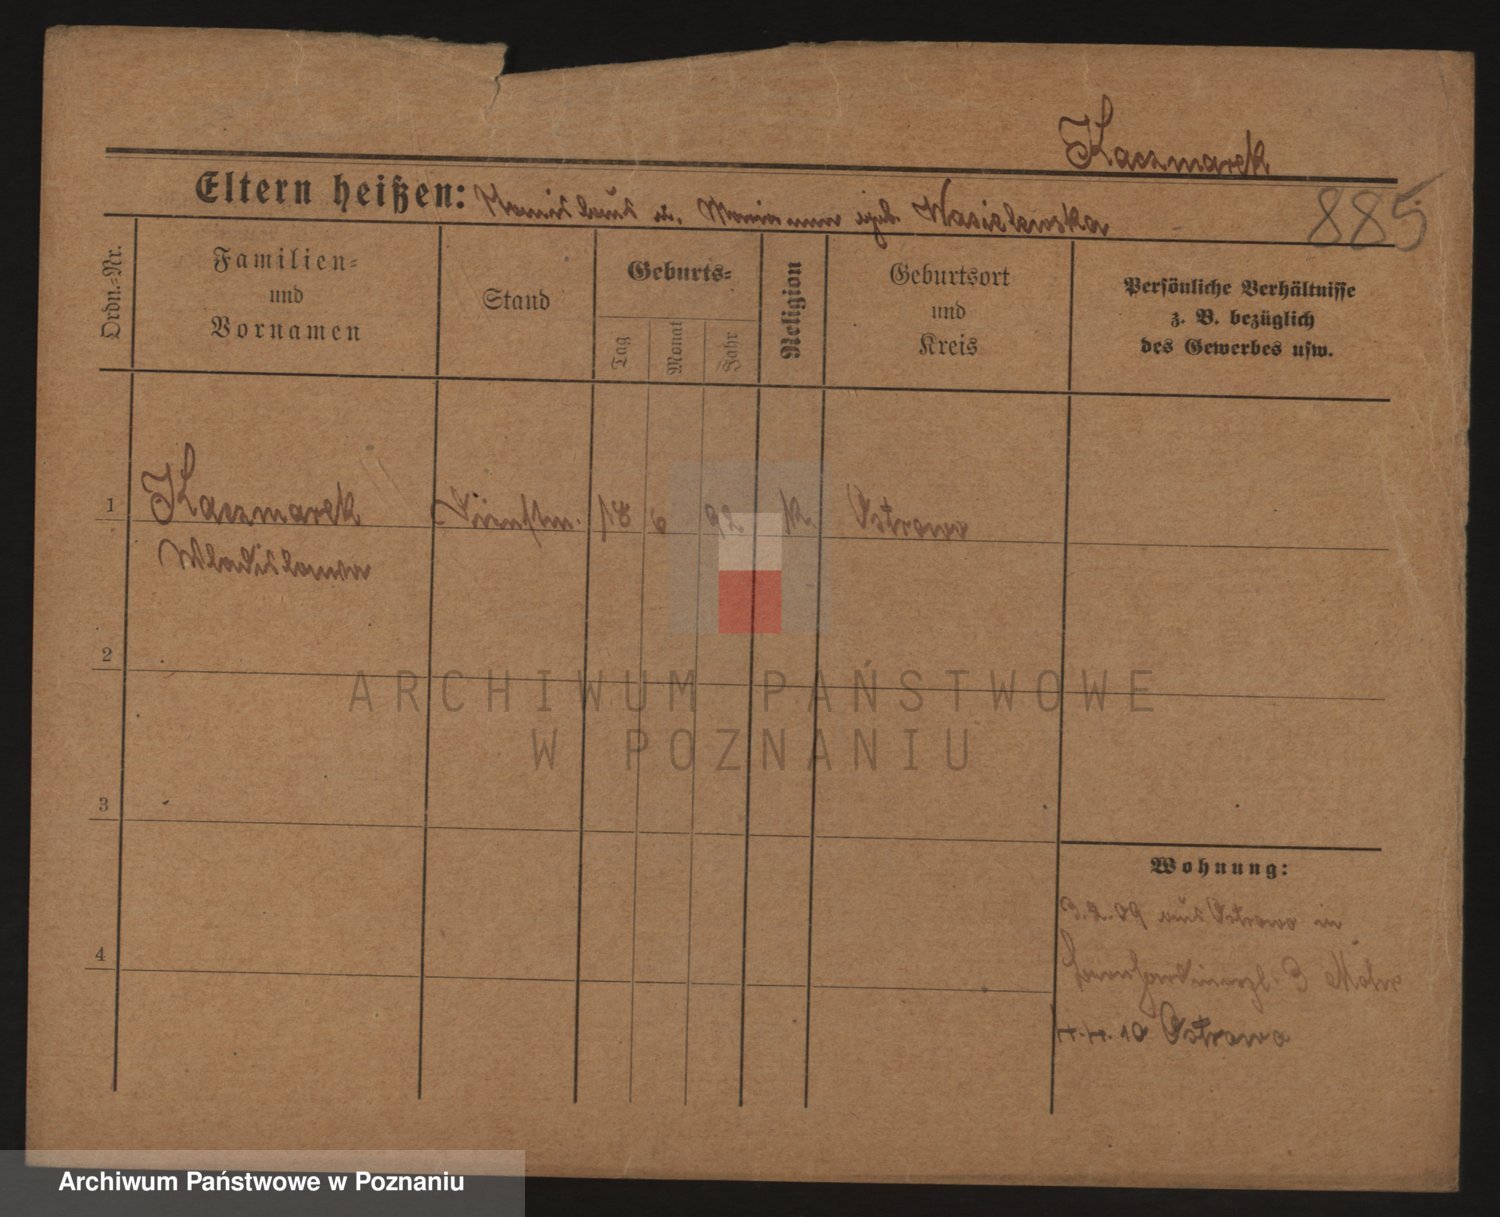 Kaczmarek
885
Eltern heißen: Stanislaus u. Marianna geb. Wasielewska
Ordn.-Nr.
Familien-
und
Vornamen
Stand
Geburts-
Tag
Monat
Jahr
Religion
Geburtsort
und
Kreis
Persönliche Verhältnisse
z. B. bezüglich
des Gewerbes usw.
1 Kaczmarek Dienstm. 18 6 92 k. Ostrowo
Wladislawa
2
3
4
Wohnung:
3.2.09 aus Ostrowo in
3
4.4.10 Ostrowo
ARCHIWUM PAŃSTWOWE
W POZNANIU
Archiwum Państwowe w Poznaniu